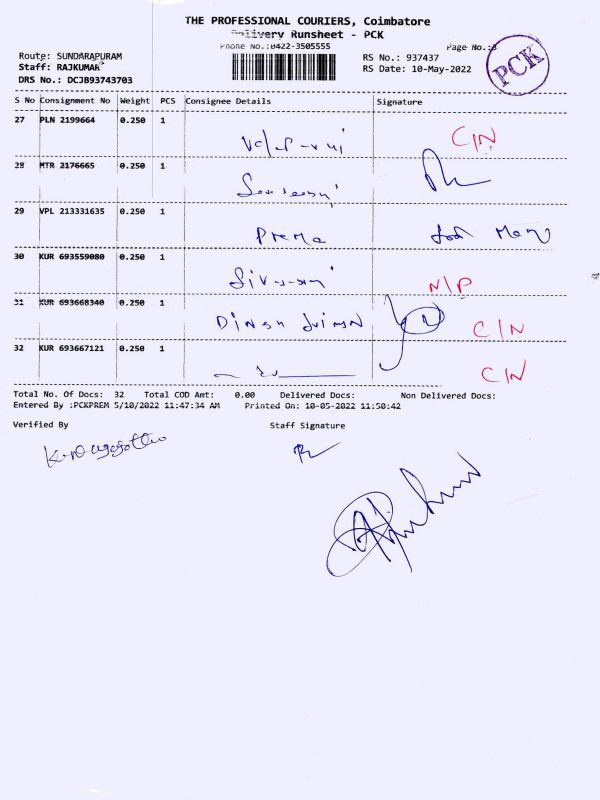 THE PROFESSIONAL COURIERS, Coimbatore
Delivery Runsheet - PCK
Phone No.:0422-3505555
Page No.:3
Route: SUNDARAPURAM
RS No.: 937437
Staff: RAJKUMAR
RS Date: 10-May-2022
DRS No.: DCJB93743703
PCK
S No Consignment No Weight PCS Consignee Details Signature
27 PLN 2199664 0.250 1
C/N
28 MTR 2176665 0.250 1
29 VPL 213331635 0.250 1
Prema
30 KUR 693559080 0.250 1
N/P
31 KUR 693668340 0.250 1
Dinesh
C/N
32 KUR 693667121 0.250 1
C/N
Total No. Of Docs: 32 Total COD Amt: 0.00 Delivered Docs: Non Delivered Docs:
Entered By :PCKPREM 5/10/2022 11:47:34 AM Printed On: 10-05-2022 11:50:42
Verified By Staff Signature